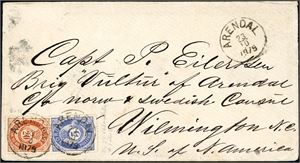 ARENDAL
23
10
1879
Capt P. Eilertsen
Brig "Vultur" of Arendal
c/o norw & Swedish Consul
Wilmington N.C.
U.S. of N. America
ARENDAL
1879